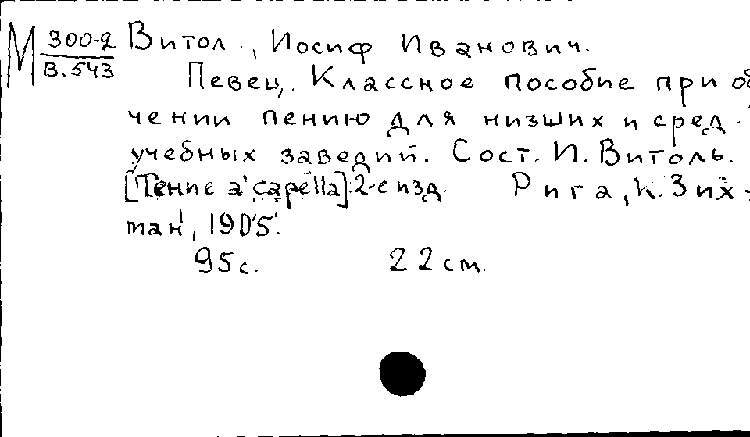 М 300-2 Витол., Иосиф Иванович.
В.543
Певец. Классное пособие при об
чении пению для низших и сред.
учебных заведий. Сост. И. Витоль.
[Пение a'capella]. 2-е изд. Рига, К. Зих-
ман, 1905.
95 с. 22 см.